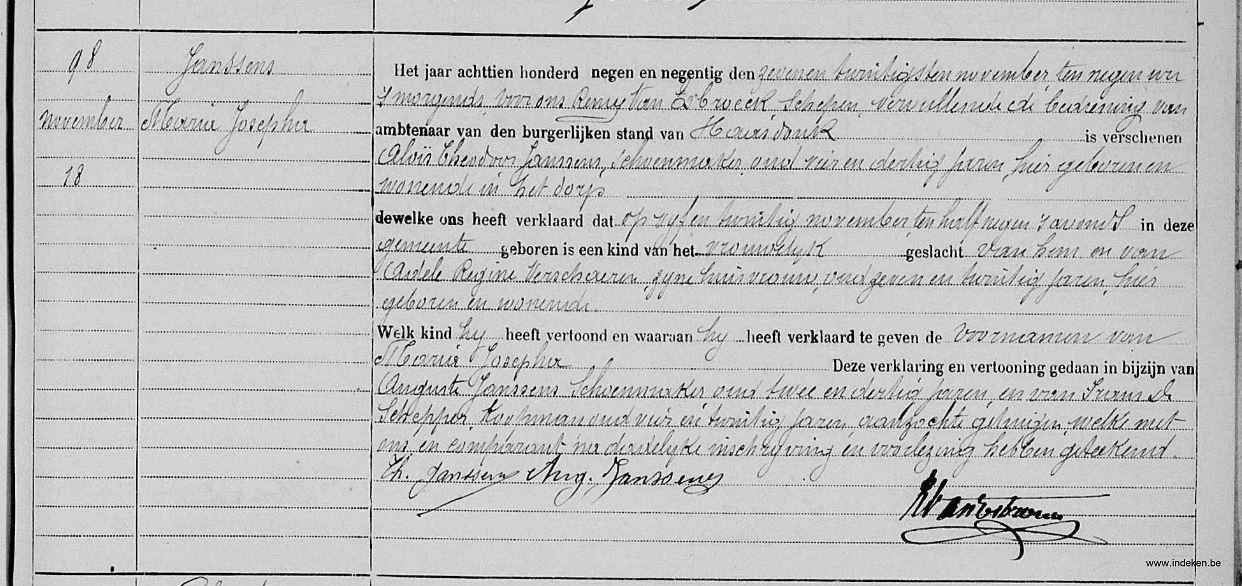 98
Janssens
november
Maria Josepha
18
Het jaar achttien honderd negen en negentig den zevenen twintigsten november ten negen ure
s morgends, voor ons Remy Van Esbroeck Schepen, vervullende de bediening van
ambtenaar van den burgerlijken stand van Haasdonk is verschenen
Aloïs Theodoor Janssens, schoenmaker, oud vier en dertig jaren, hier geboren en
wonende in het dorp
dewelke ons heeft verklaard dat op vyf en twintig november ten half negen s avonds in deze
gemeente geboren is een kind van het vrouwelyk geslacht van hem en van
Adele Regine Verschaeren, zyne huisvrouw, oud zeven en twintig jaren, hier
geboren en wonende.
Welk kind hy heeft vertoond en waaraan hy heeft verklaard te geven de voornamen van
Maria Josepha Deze verklaring en vertooning gedaan in bijzijn van
Auguste Janssens Schoenmaker oud twee en dertig jaren, en van Frans De
Schepper, Koopman oud vier en twintig jaren, aanzochte getuigen welke met
ons, en comparant, na dadelyke inschryving en voorlezing hebben geteekend.
Th. Janssens Aug. Janssens
R Van Esbroeck
www.indeken.be